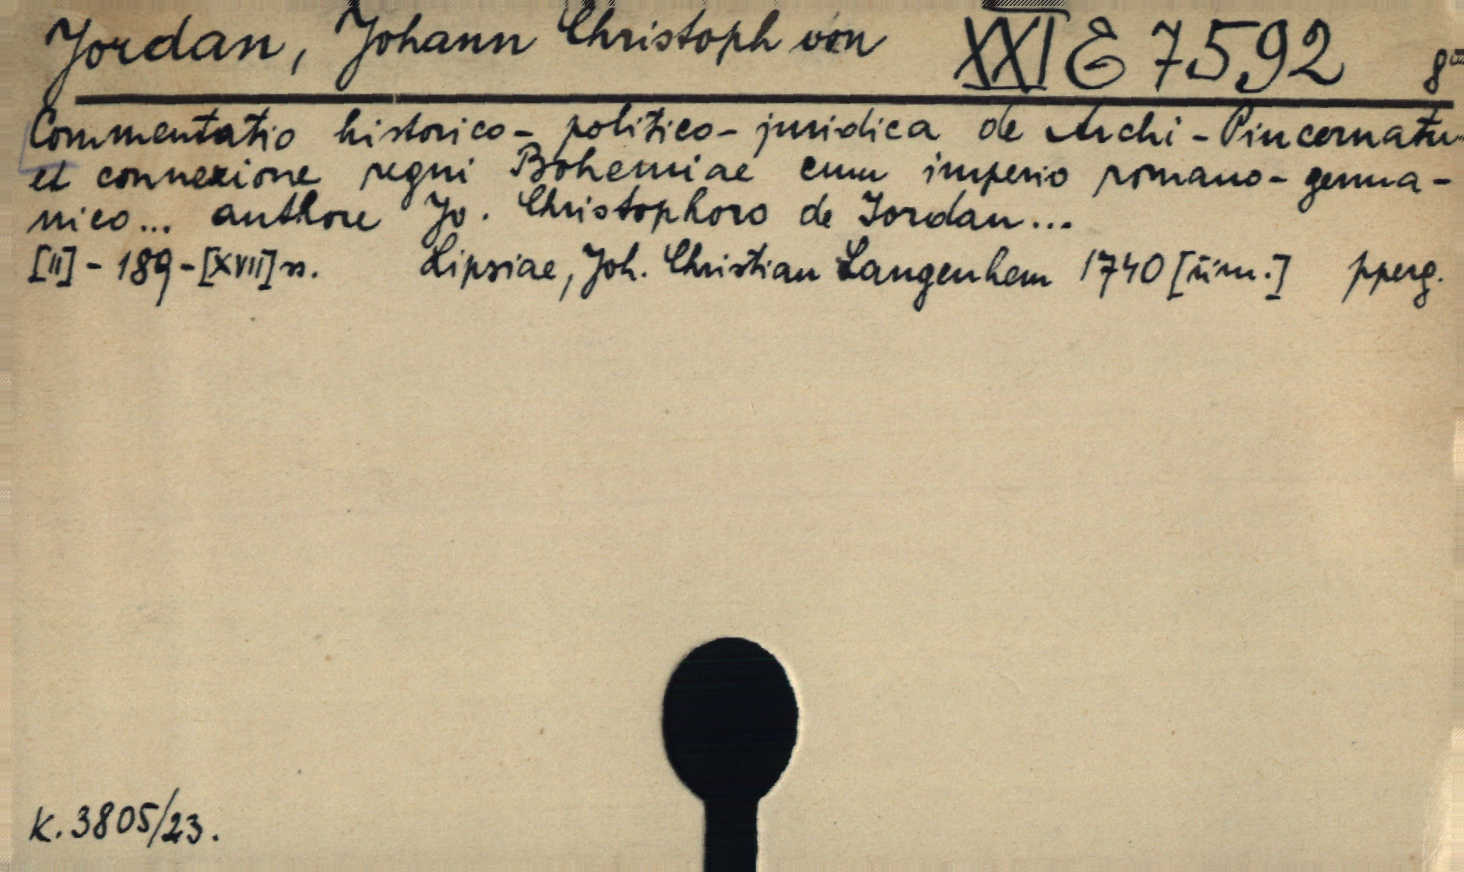 Jordan, Johann Christoph von XXI E 7592 8°
Commentatio historico-politico-juridica de Archi-Pincernatu
et connexione regni Bohemiae cum imperio romano-germa-
nico... authore Jo. Christophoro de Jordan...
[II]-189-[XVII] ss. Lipsiae, Joh. Christian Langenhem 1740 [üim.] pperg.
K. 3805/23.